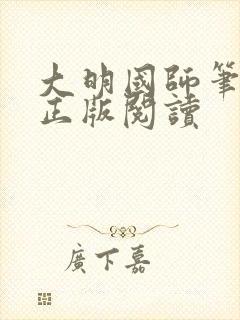 大明國師筆
正版閱讀
廣下嘉